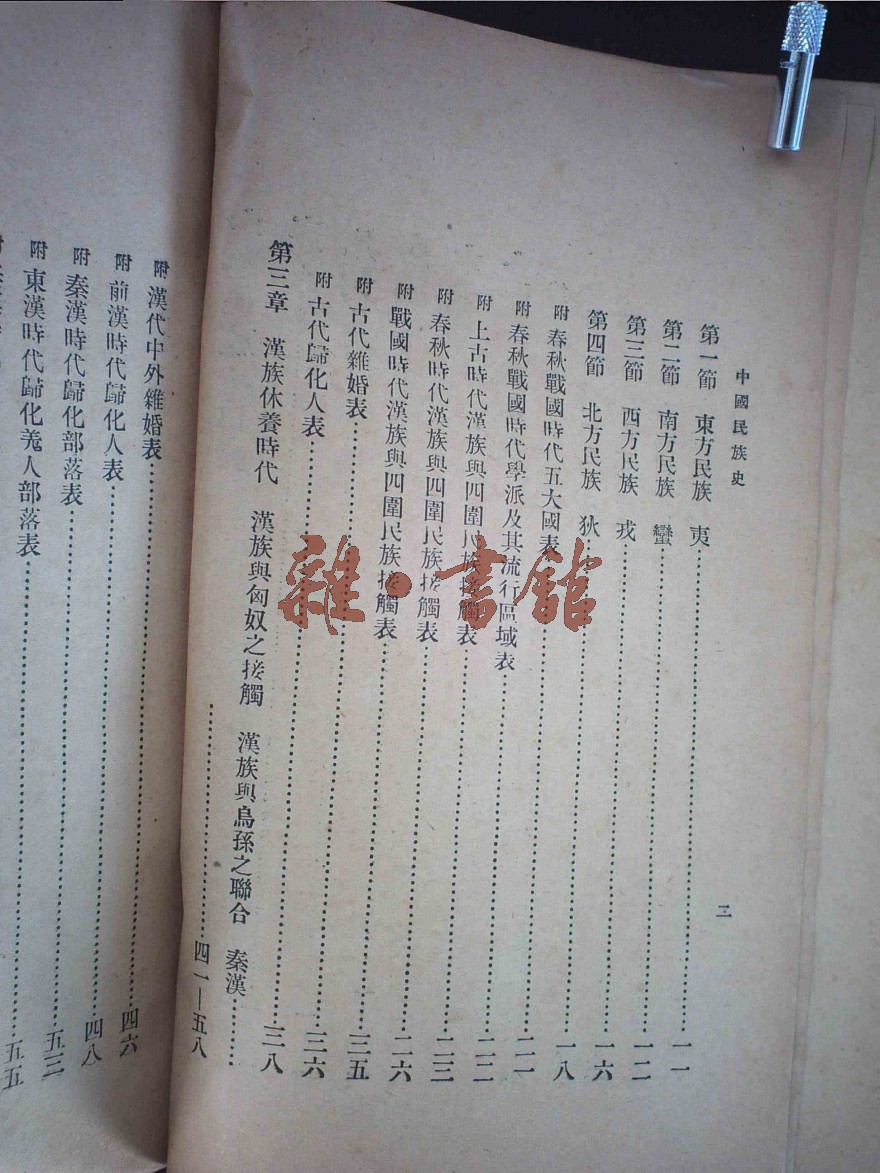 中國民族史 二
第一節 東方民族 夷……一一
第二節 南方民族 蠻……一二
第三節 西方民族 戎……一六
第四節 北方民族 狄……一八
附 春秋戰國時代五大國表……二一
附 春秋戰國時代學派及其流行區域表……二二
附 上古時代漢族與四圍民族接觸表……二三
附 春秋時代漢族與四圍民族接觸表……二六
附 戰國時代漢族與四圍民族接觸表……三五
附 古代雜婚表……三六
附 古代歸化人表……三八
第三章 漢族休養時代 漢族與匈奴之接觸 漢族與烏孫之聯合 秦漢……
……四一—五八
附 漢代中外雜婚表……四六
附 前漢時代歸化人表……四八
附 秦漢時代歸化部落表……五三
附 東漢時代歸化羌人部落表……五五
附
雜·書館